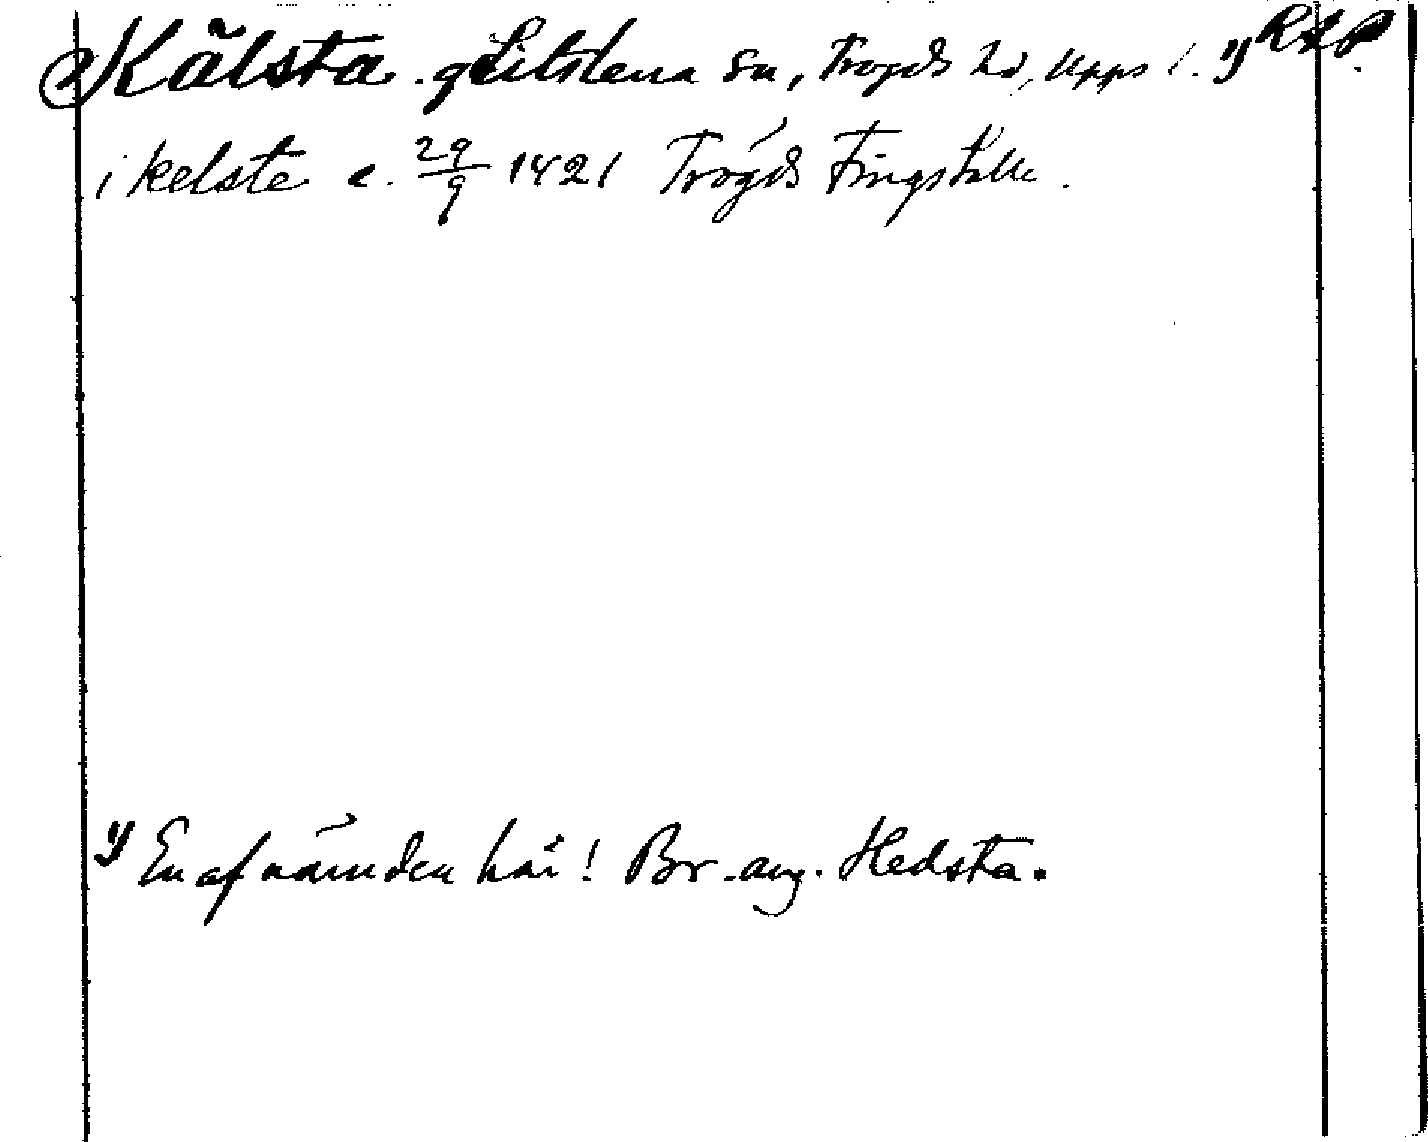 Kälsta . g Litslena sn, Trögds hd, Upps l. 1) RAP.
i kelste c. 29/9 1421 Trögds Tingställe.
1) En af nämnden här! Br. ang. Hedsta.